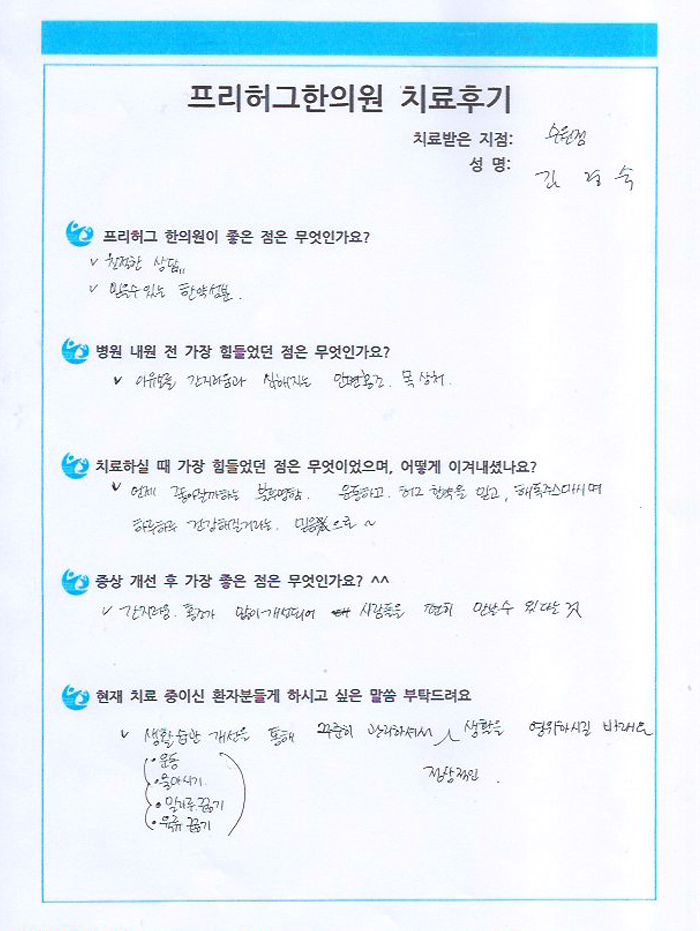 프리허그한의원 치료후기
치료받은 지점: 수원점
성 명: 김 경 숙
프리허그 한의원이 좋은 점은 무엇인가요?
✓ 친절한 상담,,
✓ 믿을수 있는 한약성분.
병원 내원 전 가장 힘들었던 점은 무엇인가요?
✓ 이유모를 간지러움과 심해지는 안면홍조. 목 상처.
치료하실 때 가장 힘들었던 점은 무엇이었으며, 어떻게 이겨내셨나요?
✓ 언제 좋아질까하는 불투명함. 운동하고. 허그 한약을 믿고, 해독주스마시며
하루하루 건강해질거라는. 믿음으로 ~
증상 개선 후 가장 좋은 점은 무엇인가요? ^^
✓ 간지러움. 홍조가 많이 개선되어 사람들을 편히 만날수 있다는 것
현재 치료 중이신 환자분들게 하시고 싶은 말씀 부탁드려요
✓ 생활습관 개선을 통해 꾸준히 관리하셔서 정상적인 생활을 영위하시길 바래요.
• 운동
• 물마시기.
• 밀가루 끊기
• 육류 끊기